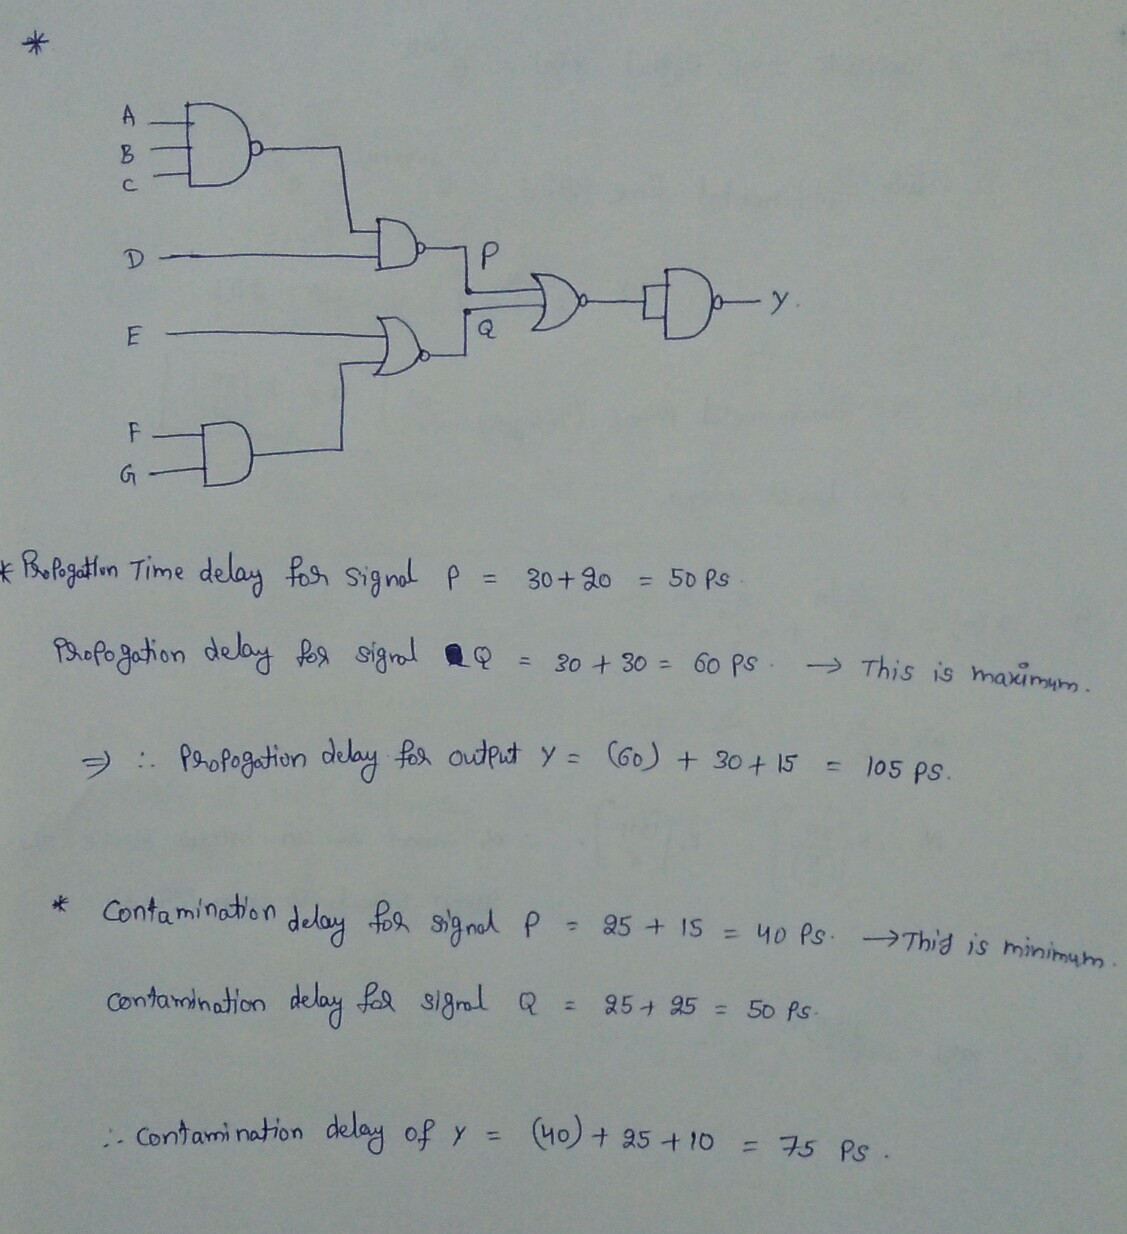 *
A
B
C
D
P
E
Q
Y.
F
G
* Propogation Time delay for signal P = 30 + 20 = 50 Ps.
Propogation delay for signal Q = 30 + 30 = 60 Ps. → This is maximum.
⇒ ∴ Propogation delay for output Y = (60) + 30 + 15 = 105 Ps.
* Contamination delay for signal P = 25 + 15 = 40 Ps. → This is minimum.
Contamination delay for signal Q = 25 + 25 = 50 Ps.
∴ Contamination delay of Y = (40) + 25 + 10 = 75 Ps.